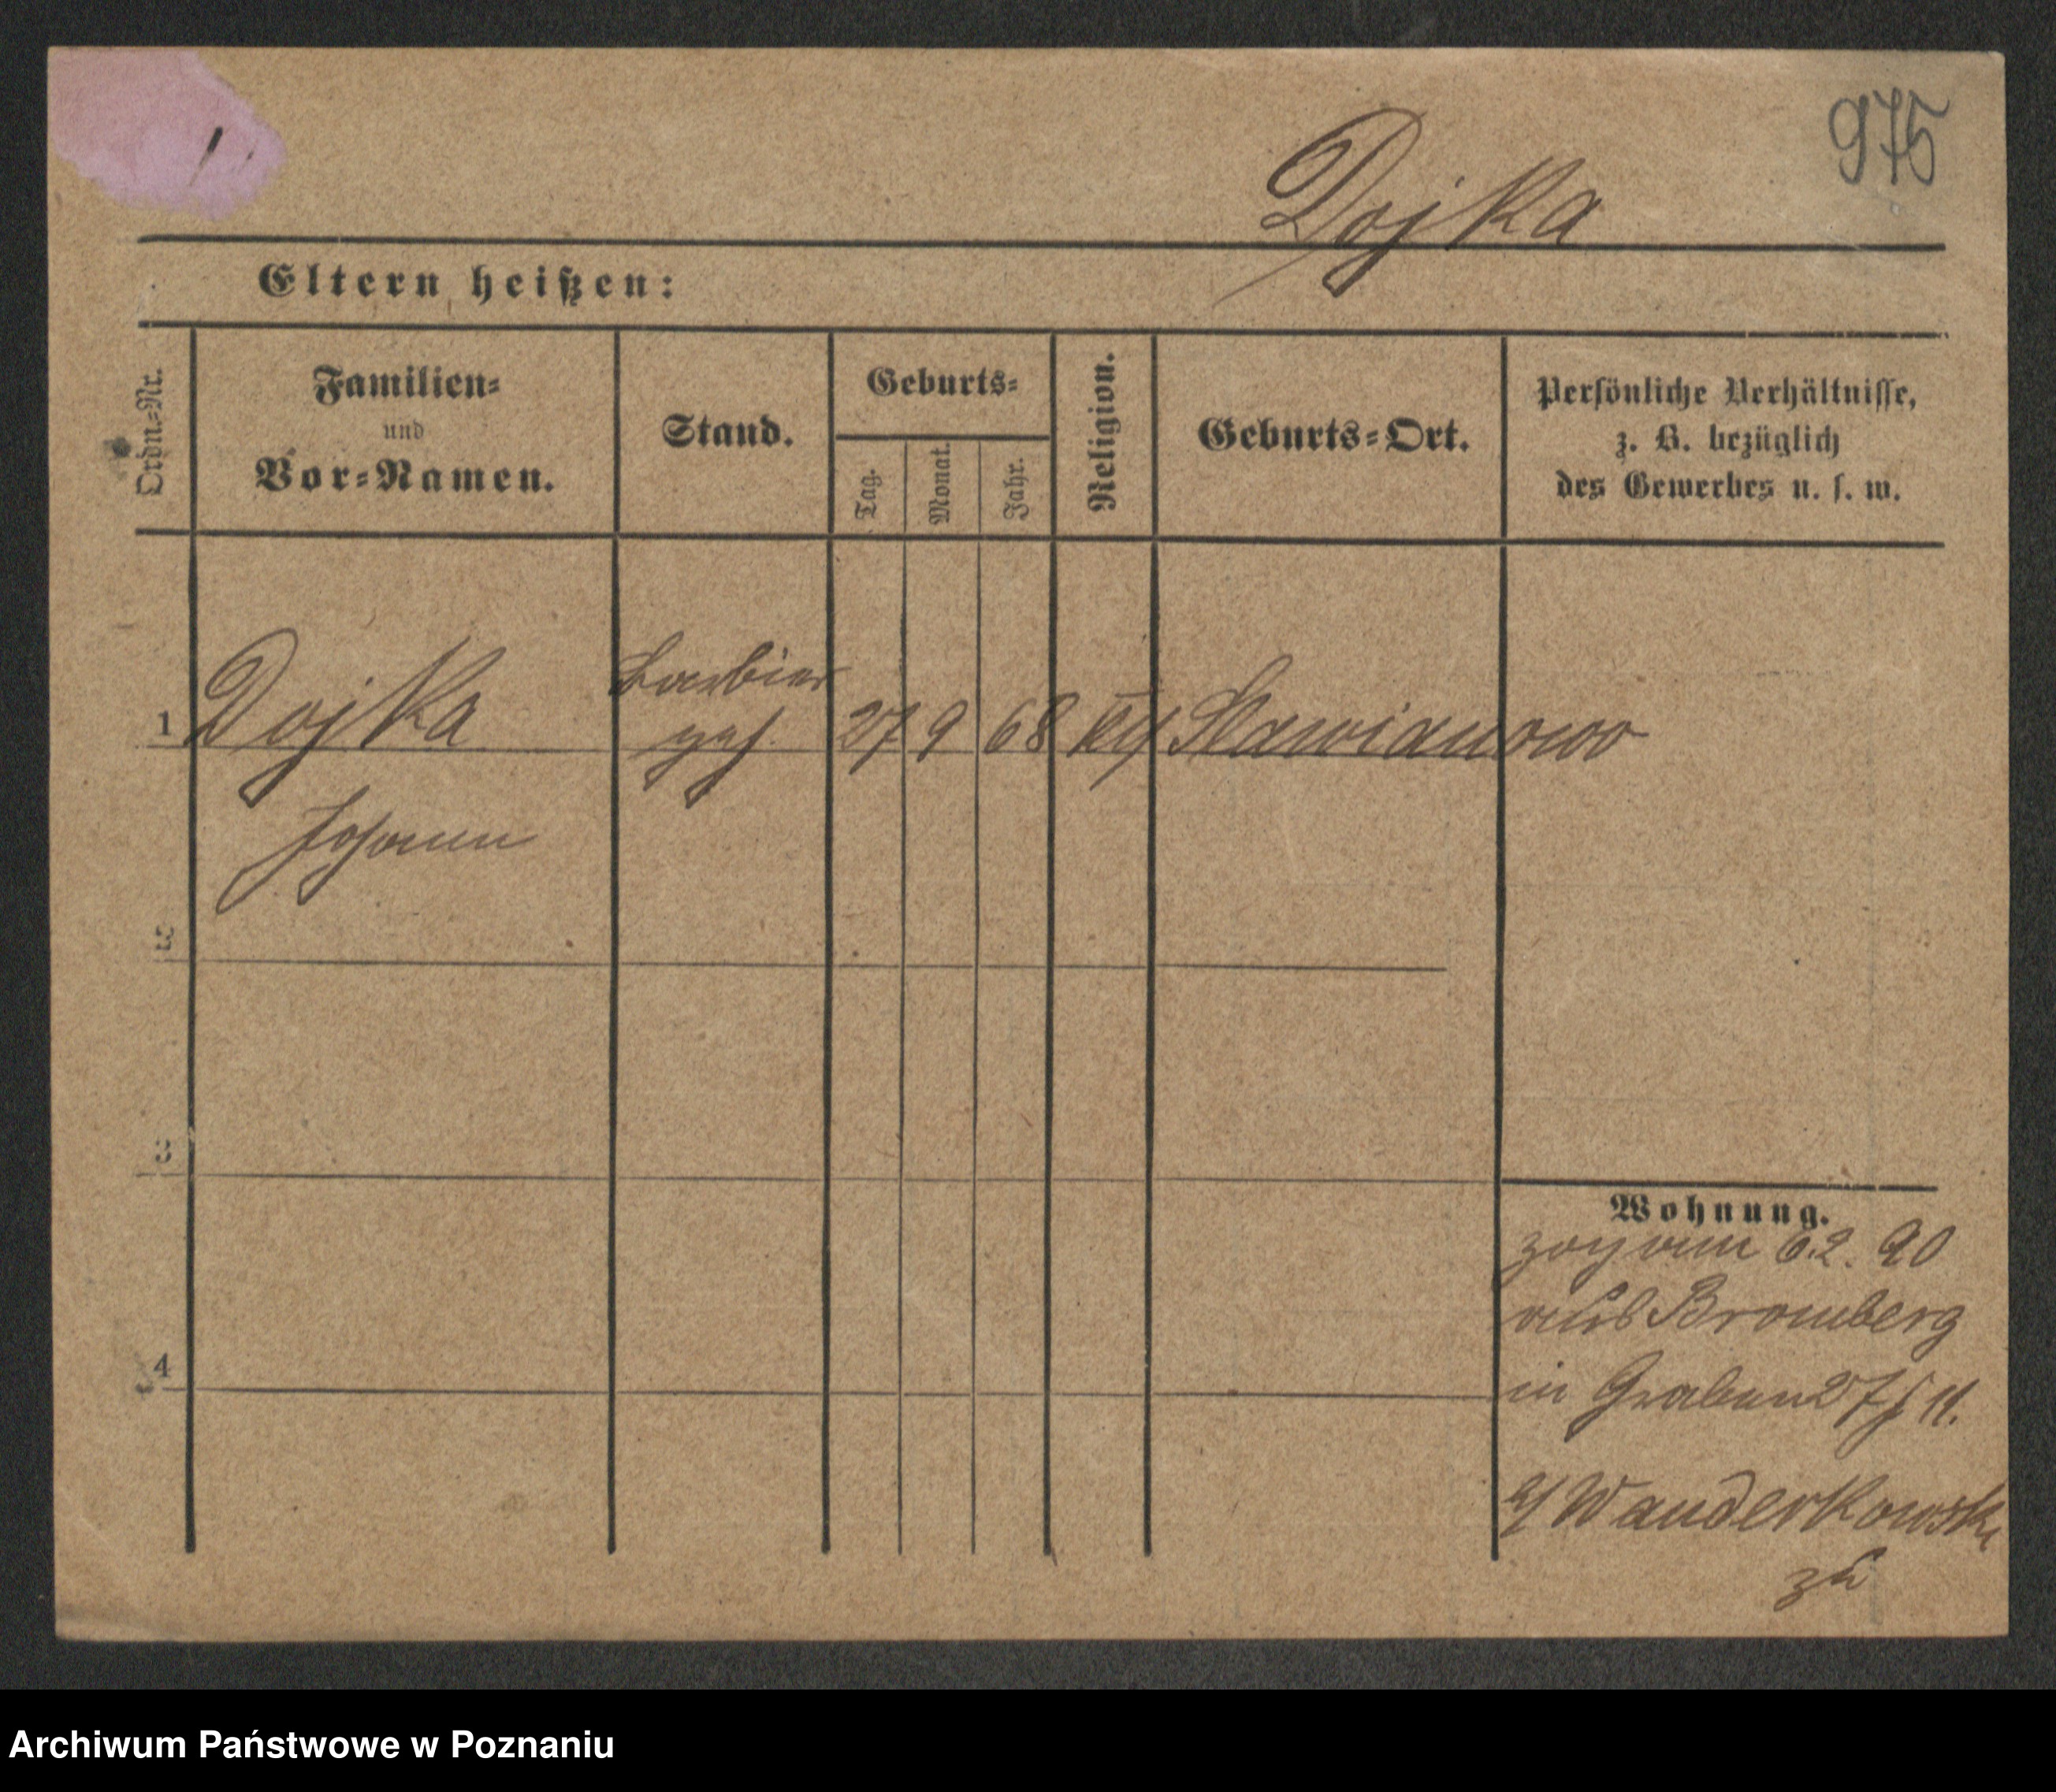 975
Dojka
Eltern heißen:
Ordn.-Nr.
Familien-
und
Vor-Namen.
Stand.
Geburts-
Tag.
Monat.
Jahr.
Religion.
Geburts-Ort.
Persönliche Verhältnisse,
z. B. bezüglich
des Gewerbes u. s. w.
1 Dojka Barbier 27 9 68 Slawianowo
Johann
2
3
4
Wohnung.
zog am 6.2.90
aus Bromberg
in Graben 27
Wanderkowski
Archiwum Państwowe w Poznaniu